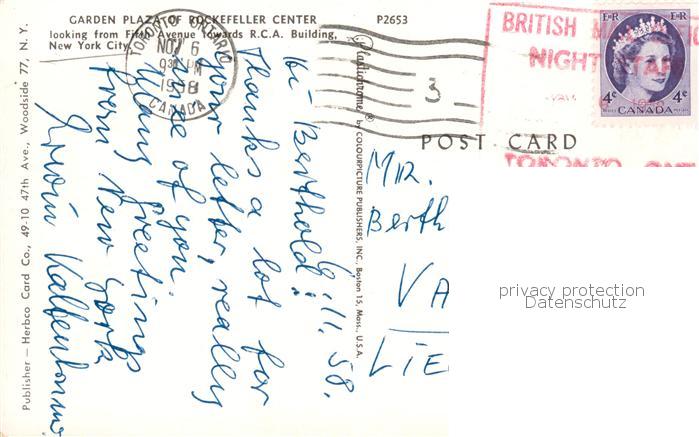 GARDEN PLAZA OF ROCKEFELLER CENTER
looking from Fifth Avenue towards R.C.A. Building,
New York City
P2653
TORONTO ONTARIO
NOV 6
PM
1958
CANADA
3
BRITISH
NIGHT
TORONTO ONT
E II R E II R
4c 4c
CANADA
POST CARD
Plastichrome ®
by COLOURPICTURE PUBLISHERS, INC., Boston 15, Mass., U.S.A.
Publisher — Herbco Card Co., 49-10 47th Ave., Woodside 77, N. Y.
6.11.58.
Hi Berthold!
Thanks a lot for
your letter, really
nice of you.
Many greetings
from New York
Erwin
MR.
Berth
VA
LIE
privacy protection
Datenschutz